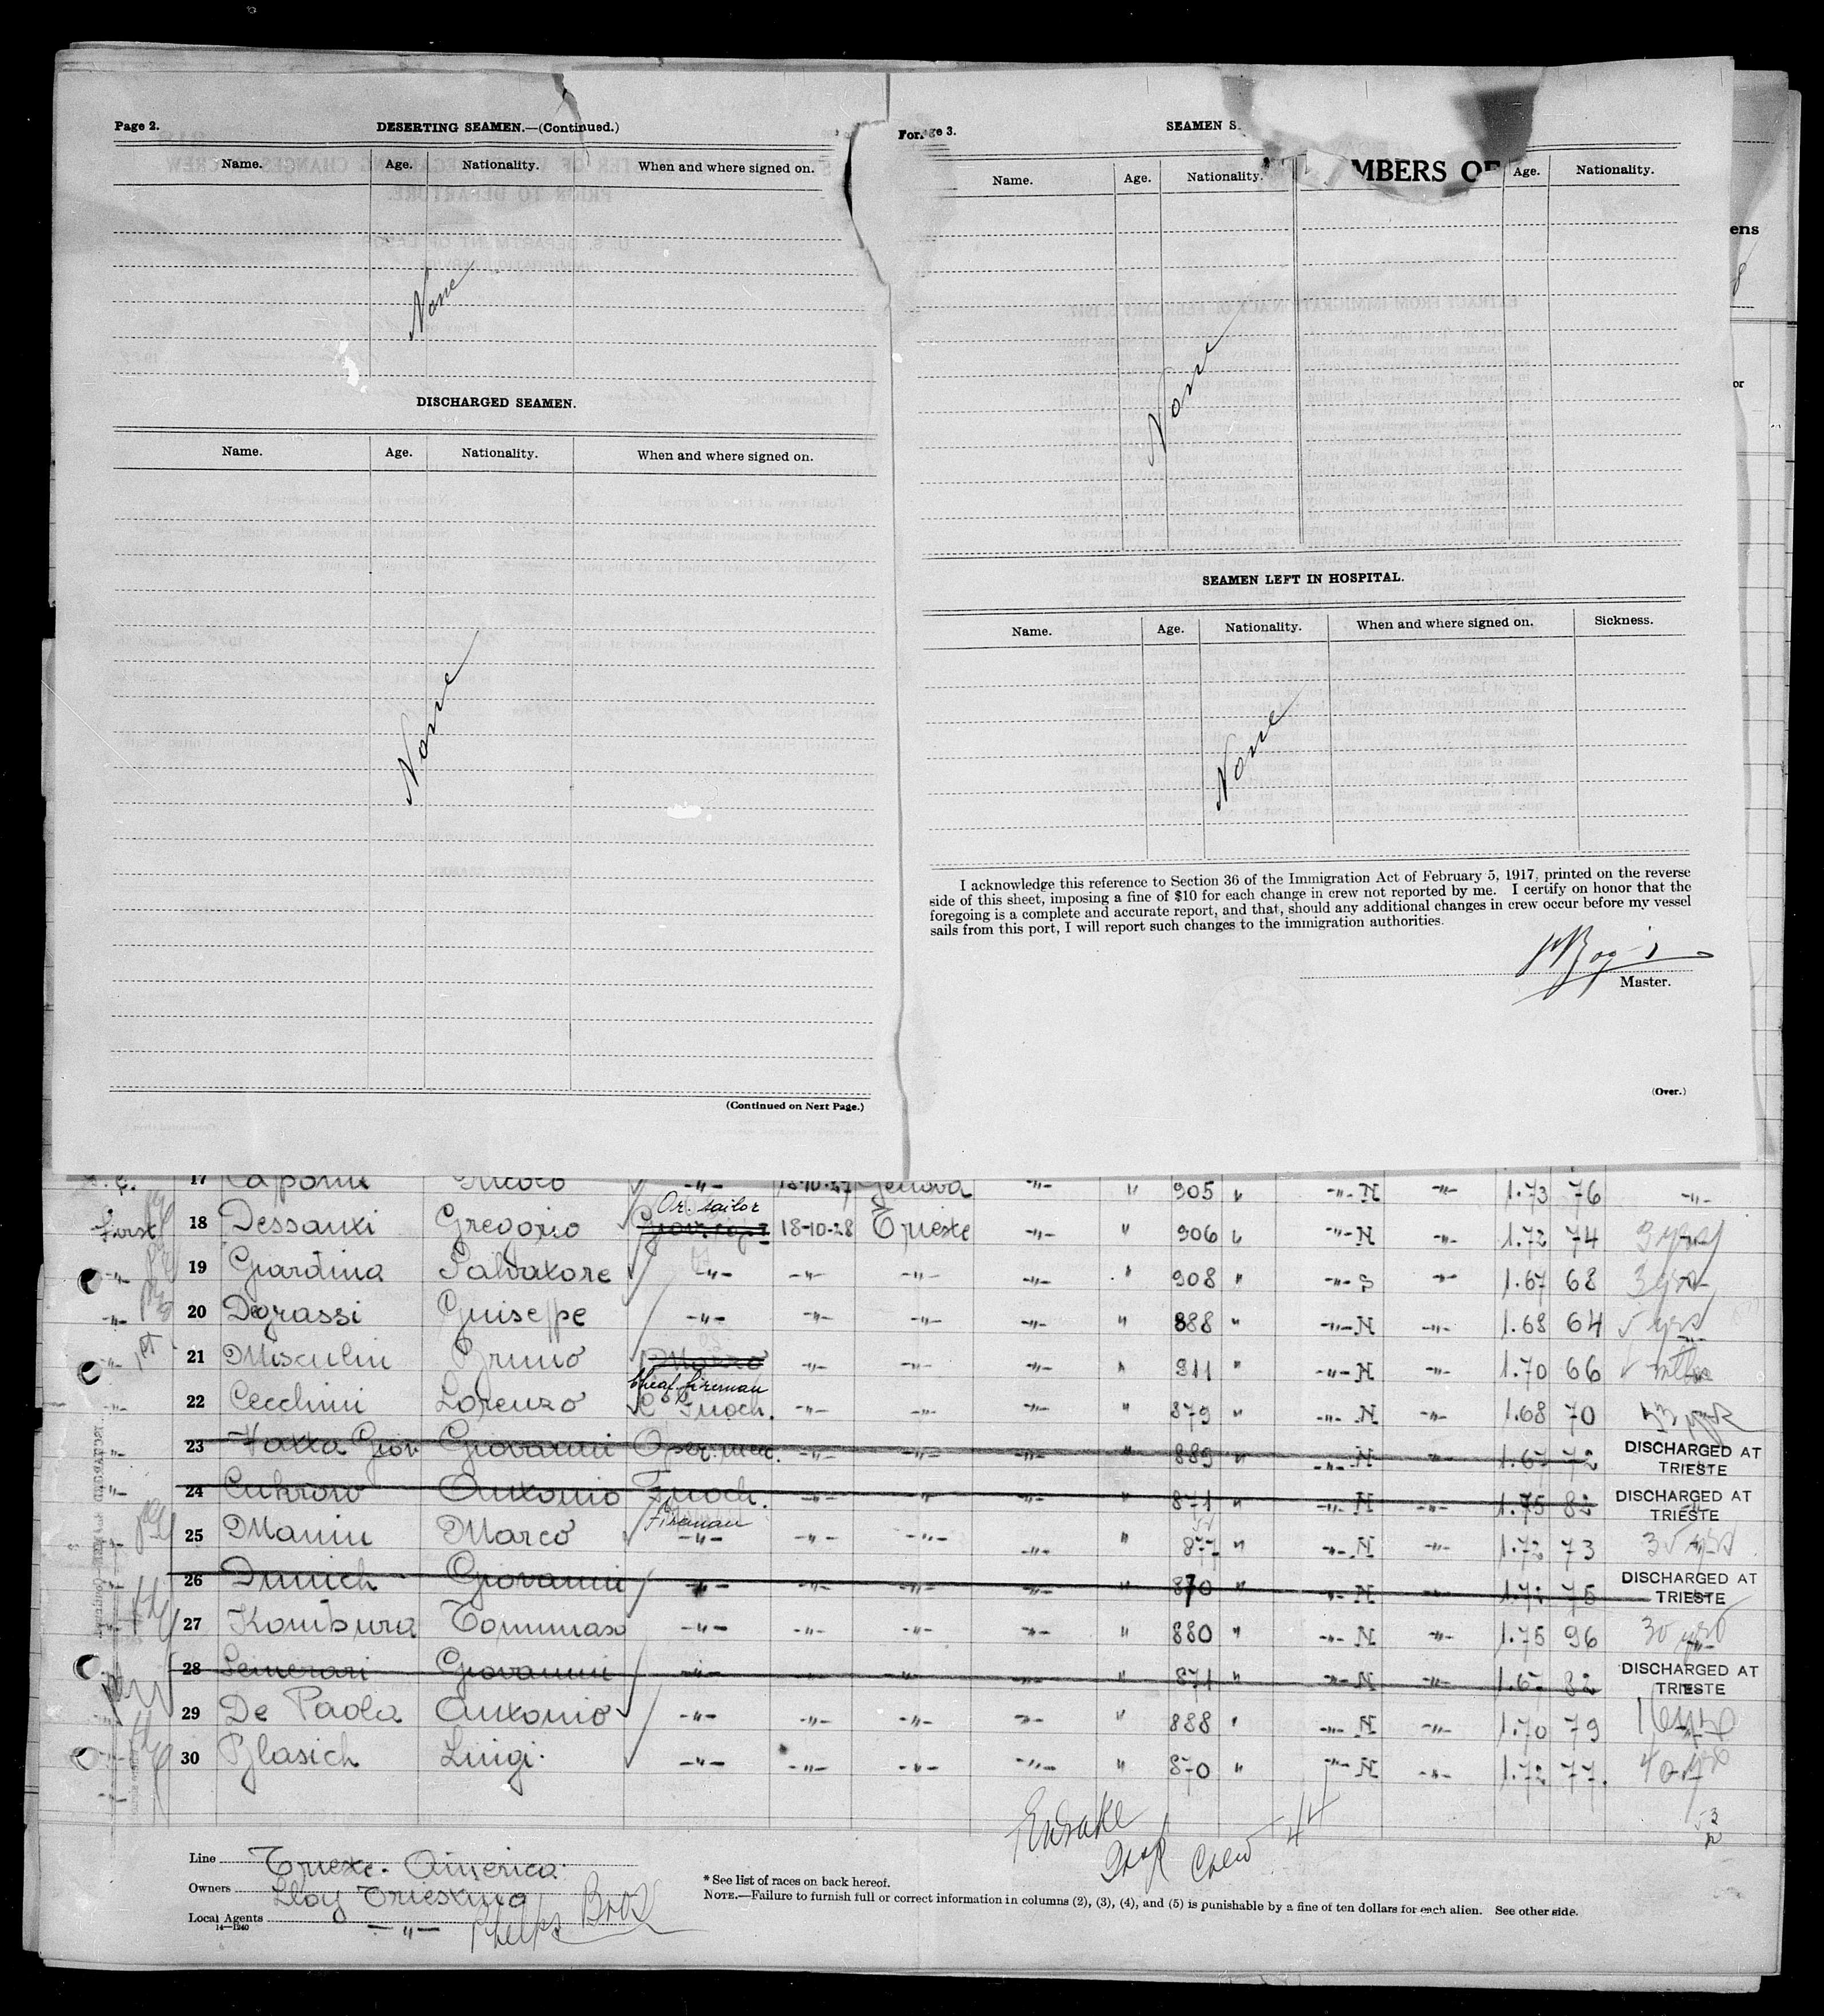 Page 2.
DESERTING SEAMEN.—(Continued.)
Name. Age. Nationality. When and where signed on.
None
DISCHARGED SEAMEN.
Name. Age. Nationality. When and where signed on.
None
(Continued on Next Page.)
For. ge 3.
SEAMEN S
MBERS OF
Name. Age. Nationality. Age. Nationality.
None
SEAMEN LEFT IN HOSPITAL.
Name. Age. Nationality. When and where signed on. Sickness.
None
I acknowledge this reference to Section 36 of the Immigration Act of February 5, 1917, printed on the reverse
side of this sheet, imposing a fine of $10 for each change in crew not reported by me. I certify on honor that the
foregoing is a complete and accurate report, and that, should any additional changes in crew occur before my vessel
sails from this port, I will report such changes to the immigration authorities.
Master.
(Over.)
ens
or
17 18-10-27 Genova -"- " 905 " -"- N -"- 1.73 76 -"-
Or. sailor
First 18 Gregorio 18-10-28 Trieste -"- " 906 " -"- N -"- 1.72 74
-"- 19 Giardina Salvatore -"- -"- -"- -"- " 908 " -"- S -"- 1.67 68 3 yrs
-"- 20 Degrassi Guiseppe -"- -"- -"- -"- " 888 " -"- N -"- 1.68 64 5 yrs
-"- 21 Misculin Bruno Mozzo -"- -"- -"- " 911 " -"- N -"- 1.70 66
Cheaf fireman
-"- 22 Cecchini Lorenzo C° Fuoch. -"- -"- -"- " 879 " -"- N -"- 1.68 70
-"- 23 Giovanni -"- -"- " 889 " -"- N -"- 1.67 72 DISCHARGED AT
TRIESTE
-"- 24 Antonio Fuoch. -"- -"- -"- " 871 " -"- N -"- 1.75 82 DISCHARGED AT
TRIESTE
Fireman
-"- 25 Manin Marco -"- -"- -"- -"- " 877 " -"- N -"- 1.72 73 35 yrs
-"- 26 Giovanni -"- -"- -"- -"- " 870 " -"- N -"- 1.72 75 DISCHARGED AT
TRIESTE
27 Kombura Tommaso -"- -"- -"- -"- " 880 " -"- N -"- 1.75 96 30 yrs
28 Semerari Giovanni -"- -"- -"- -"- " 871 " -"- N -"- 1.67 82 DISCHARGED AT
TRIESTE
29 De Paola Antonio -"- -"- -"- -"- " 888 " -"- N -"- 1.70 79
30 Blasich Luigi -"- -"- -"- -"- " 870 " -"- N -"- 1.72 77.
Crew 44
Line Trieste-America
Owners Lloy Triestino
Local Agents -"- Phelps Bros
14—1240
* See list of races on back hereof.
NOTE.—Failure to furnish full or correct information in columns (2), (3), (4), and (5) is punishable by a fine of ten dollars for each alien. See other side.